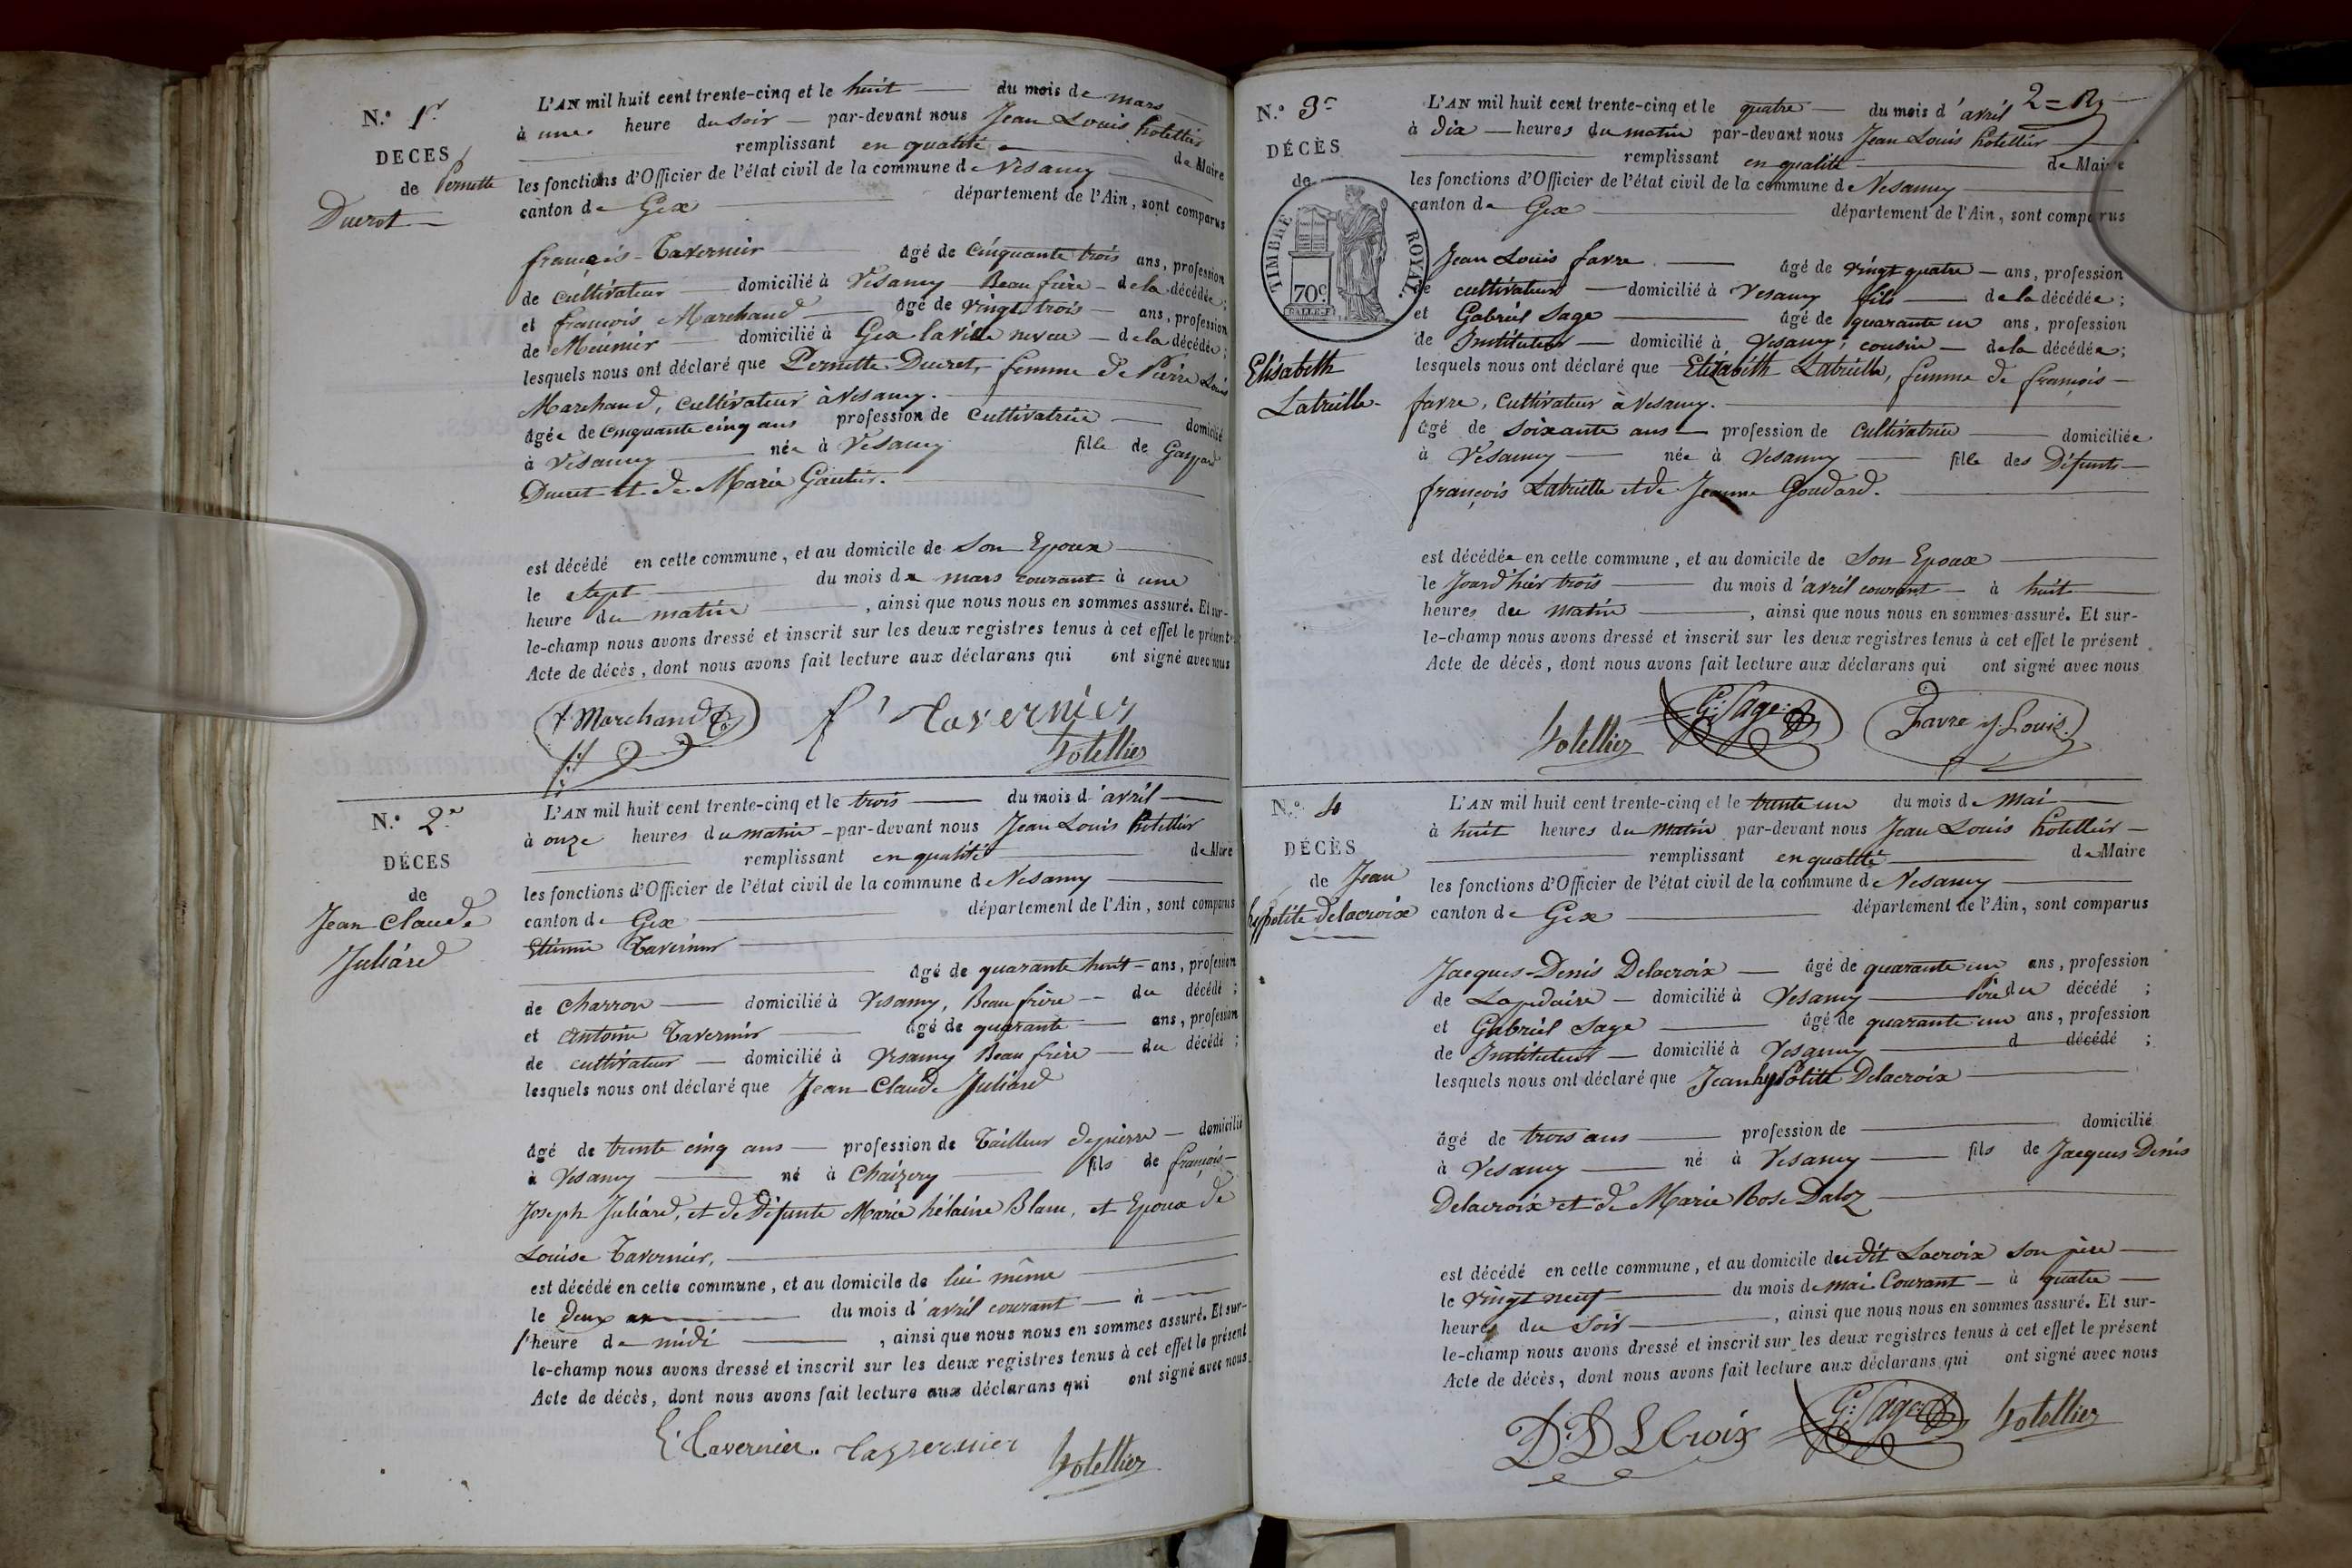 N.° 1.r
DECES
de Pernette
Ducret
L'AN mil huit cent trente-cinq et le huit du mois de mars
à une heure du soir par-devant nous Jean Louis hotellier
remplissant en qualité de Maire
les fonctions d'Officier de l'état civil de la commune de Vesancy
canton de Gex département de l'Ain, sont comparus
françois Tavernier âgé de cinquante trois ans, profession
de cultivateur domicilié à Vesancy Beau frère de la décédée ;
et françois Marchand âgé de vingt trois ans, profession
de Meunier domicilié à Gex la ville neveu de la décédée ;
lesquels nous ont déclaré que Pernette Ducret, femme de Pierre Louis
Marchand, cultivateur à Vesancy.
âgée de cinquante cinq ans profession de cultivatrice domicilié
à Vesancy née à Vesancy fille de Gaspard
Ducret et de Marie Gautier.
est décédé en cette commune, et au domicile de son Epoux
le sept du mois de mars courant à une
heure du matin , ainsi que nous nous en sommes assuré. Et sur-
le-champ nous avons dressé et inscrit sur les deux registres tenus à cet effet le présent
Acte de décès, dont nous avons fait lecture aux déclarans qui ont signé avec nous
f Marchand f' Tavernier
hotellier
N.° 2.e
DÉCES
de
Jean Claude
Juliard
L'AN mil huit cent trente-cinq et le trois du mois d'avril
à onze heures du matin par-devant nous Jean Louis hotellier
remplissant en qualité de Maire
les fonctions d'Officier de l'état civil de la commune de Vesancy
canton de Gex département de l'Ain, sont comparus
Etienne Tavernier
âgé de quarante huit ans, profession
de charron domicilié à Vesancy, Beau frère du décédé ;
et Antoine Tavernier âgé de quarante ans, profession
de cultivateur domicilié à Vesancy Beau frère du décédé ;
lesquels nous ont déclaré que Jean Claude Juliard
âgé de trente cinq ans profession de Tailleur de pierre domicilié
à Vesancy né à Chaizery fils de françois
Joseph Juliard, et de Défunte Marie hélaine Blanc, et Epoux de
Louise Tavernier,
est décédé en cette commune, et au domicile de lui même
le deux du mois d'avril courant à
l'heure de midi , ainsi que nous nous en sommes assuré. Et sur-
le-champ nous avons dressé et inscrit sur les deux registres tenus à cet effet le présent
Acte de décès, dont nous avons fait lecture aux déclarans qui ont signé avec nous
E. Tavernier. Tavernier hotellier
2 =
N.° 3.e
DÉCÈS
de
TIMBRE ROYAL.
70c
Elisabeth
Latreille
L'AN mil huit cent trente-cinq et le quatre du mois d'avril
à dix heures du matin par-devant nous Jean Louis hotellier
remplissant en qualité de Maire
les fonctions d'Officier de l'état civil de la commune de Vesancy
canton de Gex département de l'Ain, sont comparus
Jean Louis favre âgé de vingt quatre ans, profession
de cultivateur domicilié à Vesancy fils de la décédée ;
et Gabriel Sage âgé de quarante un ans, profession
de Instituteur domicilié à Vesancy, cousin de la décédée ;
lesquels nous ont déclaré que Elizabeth Latreille, femme de françois
favre, cultivateur à Vesancy.
âgé de soixante ans profession de cultivatrice domiciliée
à Vesancy née à Vesancy fille des Défunts
françois Latreille et de Jeanne Goudard.
est décédée en cette commune, et au domicile de son Epoux
le Jourd'hier trois du mois d'avril courant à huit
heures du matin , ainsi que nous nous en sommes assuré. Et sur-
le-champ nous avons dressé et inscrit sur les deux registres tenus à cet effet le présent
Acte de décès, dont nous avons fait lecture aux déclarans qui ont signé avec nous
hotellier G: Sage Favre J Louis
N.° 4
DÉCÈS
de Jean
hyppolite Delacroix
L'AN mil huit cent trente-cinq et le trente un du mois de Mai
à huit heures du matin par-devant nous Jean Louis hotellier
remplissant en qualité de Maire
les fonctions d'Officier de l'état civil de la commune de Vesancy
canton de Gex département de l'Ain, sont comparus
Jacques-Denis Delacroix âgé de quarante un ans, profession
de Lapidaire domicilié à Vesancy Père du décédé ;
et Gabriel Sage âgé de quarante un ans, profession
de Instituteur domicilié à Vesancy d décédé ;
lesquels nous ont déclaré que Jean hyppolite Delacroix
âgé de trois ans profession de domicilié
à Vesancy né à Vesancy fils de Jacques Denis
Delacroix et de Marie Rose Daloz
est décédé en cette commune, et au domicile du dit Lacroix son père
le vingt neuf du mois de mai Courant à quatre
heures du soir , ainsi que nous nous en sommes assuré. Et sur-
le-champ nous avons dressé et inscrit sur les deux registres tenus à cet effet le présent
Acte de décès, dont nous avons fait lecture aux déclarans qui ont signé avec nous
G: Sage hotellier